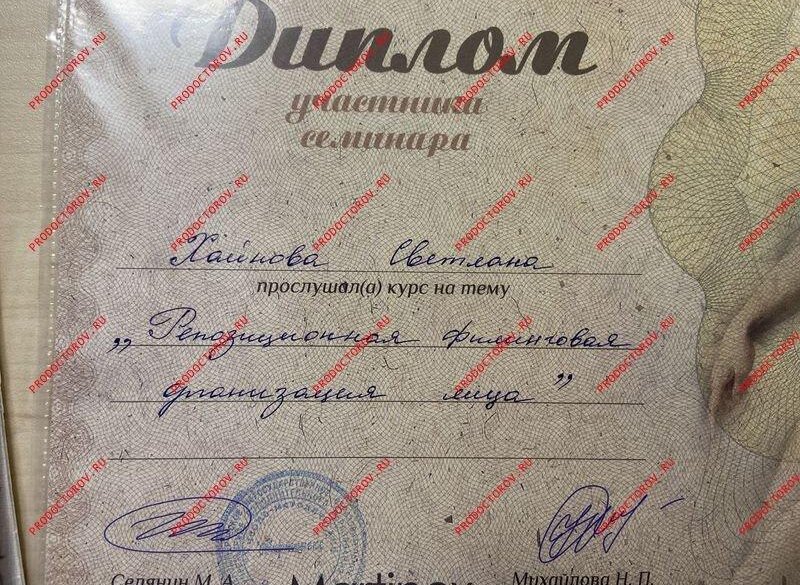 Диплом
участника
семинара
Хайнова Светлана
прослушал(а) курс на тему
„Репозиционная филинговая
организация лица”
Селянин М. А.
Михайлова Н. П.
PRODOCTOROV.RU